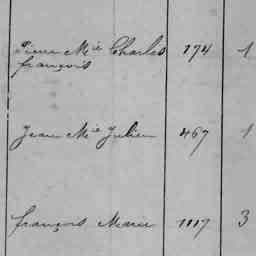 Pierre Mie Charles 174 1
françois
Jean Mie Julien 467 1
françois Marie 1117 3